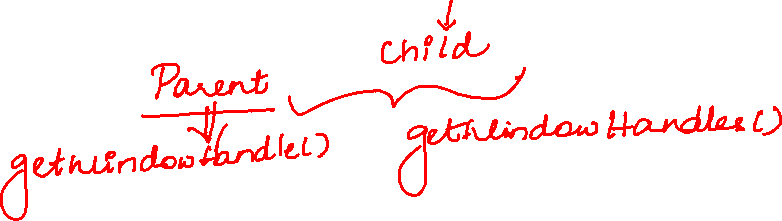 Child
Parent
getWindowHandle()
getWindowHandles()